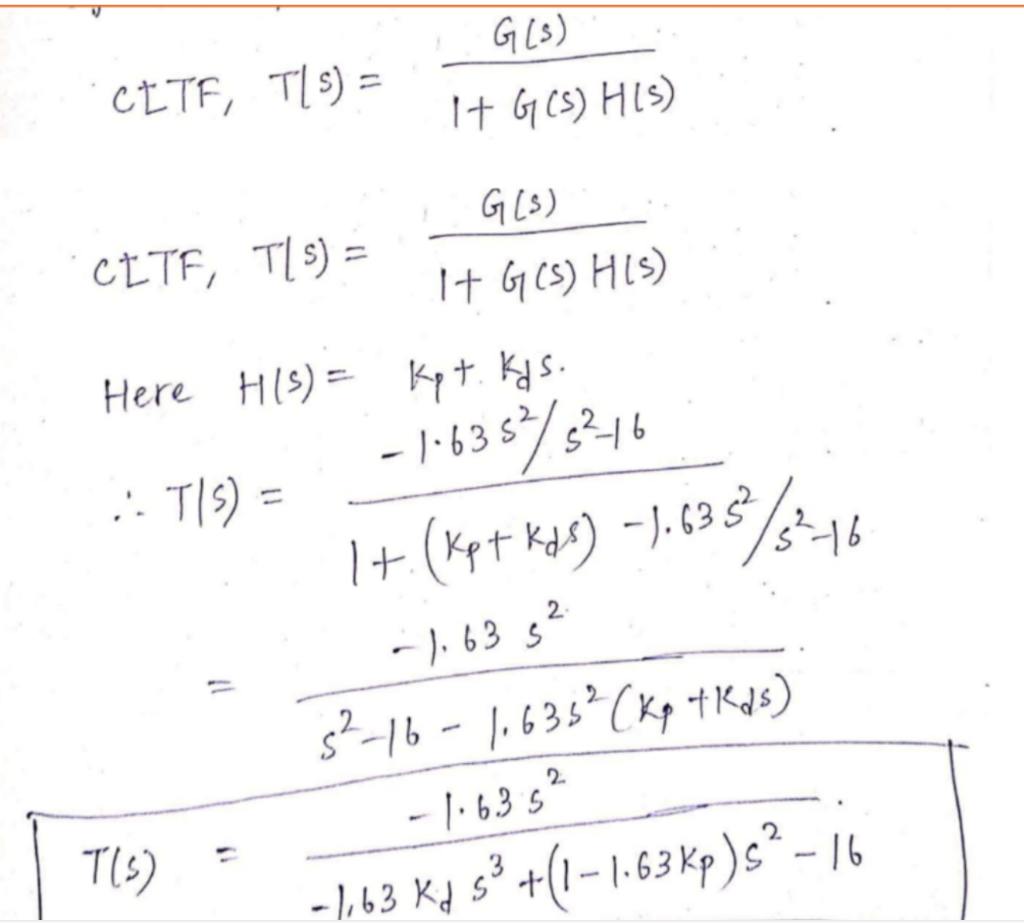 G(s)
CLTF, T(s) = ———
1+ G(s) H(s)
G(s)
CLTF, T(s) = ———
1+ G(s) H(s)
Here H(s) = Kp + Kds.
-1.63 s²/s²-16
∴ T(s) = ———
1+ (Kp+Kds) -1.63 s²/s²-16
-1.63 s²
= ———
s²-16 - 1.63s² (Kp +Kds)
-1.63 s²
T(s) = ———
-1.63 Kd s³ +(1-1.63Kp)s² - 16